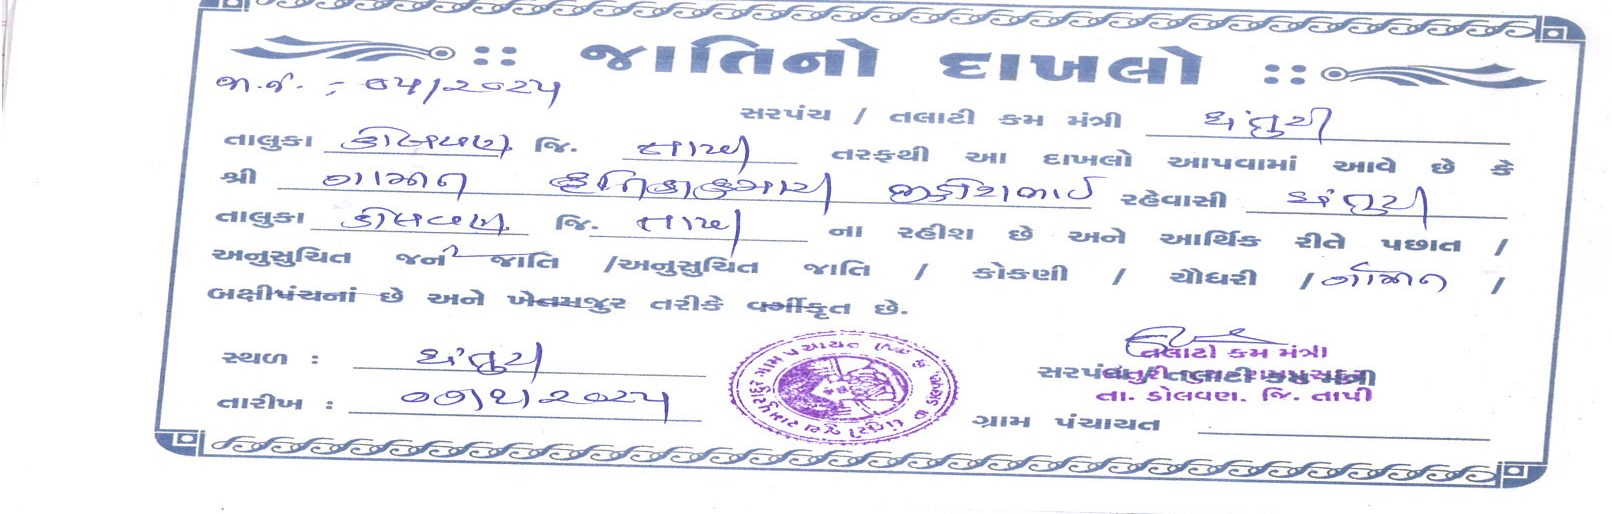 જાતિનો દાખલો
જા.નં. : ૦૫/૨૦૨૫
સરપંચ / તલાટી કમ મંત્રી
તાલુકા ડોલવણ જિ. તાપી તરફથી આ દાખલો આપવામાં આવે છે કે
શ્રી ગામીત રહેવાસી
તાલુકા ડોલવણ જિ. તાપી ના રહીશ છે અને આર્થિક રીતે પછાત /
અનુસુચિત જન જાતિ /અનુસુચિત જાતિ / કોકણી / ચૌધરી / ગામીત /
બક્ષીપંચનાં છે અને ખેતમજુર તરીકે વર્ગીકૃત છે.
સ્થળ :
તલાટી કમ મંત્રી
સરપંચ / તલાટી કમ મંત્રી
તા. ડોલવણ. જિ. તાપી
તારીખ :
ગ્રામ પંચાયત